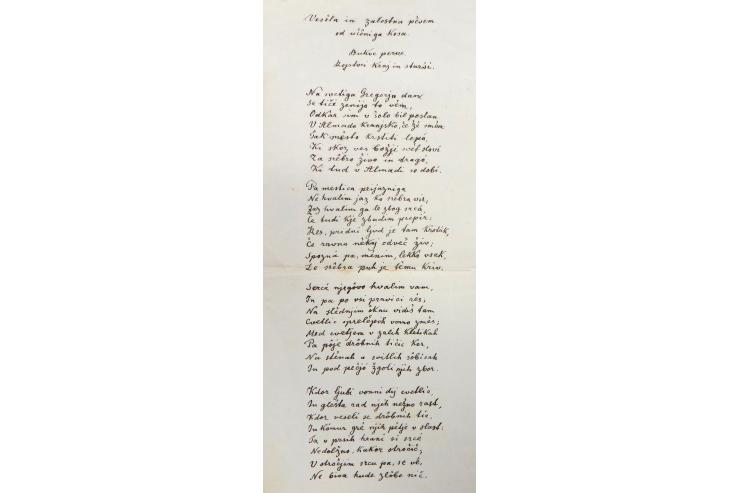 Vesela in žalostna pesem
od učeniga kosa.
Bukve perve.
Kraj in starši.
Na svetiga Gregorja dan
Se tiči ženijo to vem,
Odkar sim v šolo bil poslan
V Almado kranjsko, če že smém
Tak mésto krstiti lepó,
Ki skoz ves božji svét slovi
Za srébro živo in dragó,
Ki tud v Almadi se dobi.
Pa mestica prijazniga
Ne hvalim jaz ko srébra vir;
Jaz hvalim ga le zbog srcá,
Če tudi kje zbudim prepir;
Res, pridni ljud je tam kroták,
Če ravno nékaj odveč živ;
Spozná pa, ménim, lehko vsak,
De srébra puh je tému kriv.
Sercé njegóvo hvalim vam,
In pa po vsi pravici rés;
Na slédnjim óknu vidiš tam
Cvetlic vonno zmés;
Med cvetjem v zalih klétkah
Pa póje dróbnih tičic kor,
Na sténah u svitlih sóbicah
In pod pečjó žgoli njih zbor.
Kdor ljubi vonni dij cvetlic,
In gleda rad njih nežno rast,
Kdor veseli se dróbnih tic,
In komur gré njih pétje v slast:
Ta v prsih hrani si srcé
Nedolžno, kakor otročič;
V otročjim srcu pa, se vé,
Ne biva hude zlóbe nič.